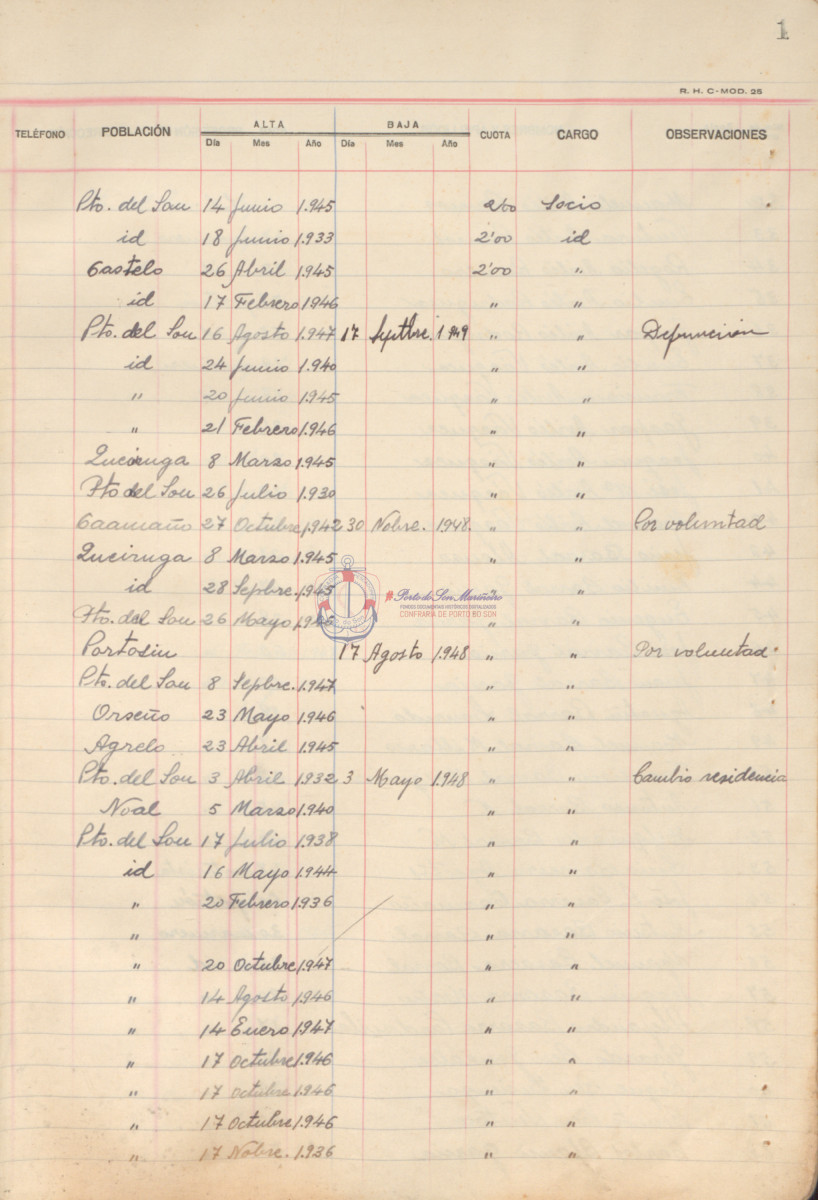 1
R. H. C-MOD. 25
TELÉFONO POBLACIÓN ALTA BAJA CUOTA CARGO OBSERVACIONES
Día Mes Año Día Mes Año
Pto. del Son 14 Junio 1.945 2'00 Socio
id 18 Junio 1.933 2'00 id
Castelo 26 Abril 1.945 2'00 "
id 17 Febrero 1.946 " "
Pto. del Son 16 Agosto 1.947 17 Septbre. 1949 " " Defunción
id 24 Junio 1.940 " "
" 20 Junio 1.945 " "
" 21 Febrero 1.946 " "
Queiruga 8 Marzo 1.945 " "
Pto del Son 26 Julio 1.930 " "
Caamaño 27 Octubre 1.942 30 Nobre. 1.948. " " Por voluntad
Queiruga 8 Marzo 1.945 " "
id 28 Sepbre. 1.945 "
Pto. del Son 26 Mayo " "
Porto do Son Mariñeiro
FONDOS DOCUMENTAIS HISTÓRICOS DIGITALIZADOS
CONFRARÍA DE PORTO DO SON
Portosin 17 Agosto 1.948 " " Por voluntad
Pto. del Son 8 Sepbre. 1.947 " "
Orseño 23 Mayo 1.946 " "
Agrelo 23 Abril 1.945 " "
Pto. del Son 3 Abril 1.932 3 Mayo 1.948 " " Cambio residencia
Noal 5 Marzo 1.940 " "
Pto. del Son 17 Julio 1.938 " "
id 16 Mayo 1.944 " "
" 20 Febrero 1.936 " "
" " "
" 20 Octubre 1.947 " "
" 14 Agosto 1.946 " "
" 14 Enero 1.947 " "
" 17 Octubre 1.946 " "
" 17 octubre 1.946 " "
" 17 Octubre 1.946 " "
" 17 Nobre. 1.936 " "